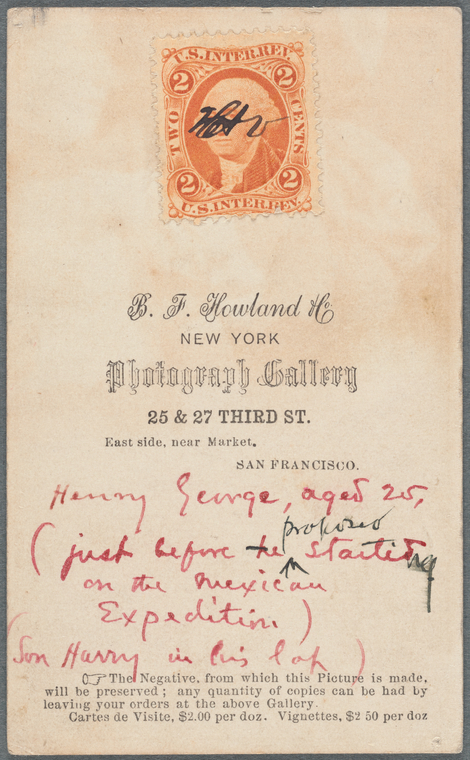 U.S. INTER. REV.
2 2
TWO CENTS
2 2
U.S. INTER. REV.
B. F. Howland & Co
NEW YORK
Photograph Gallery
25 & 27 THIRD ST.
East side, near Market.
SAN FRANCISCO.
Henry George, aged 25,
proposed
(just before he starting
on the Mexican
Expedition.)
(Son Harry in his lap)
☞ The Negative, from which this Picture is made,
will be preserved; any quantity of copies can be had by
leaving your orders at the above Gallery.
Cartes de Visite, $2.00 per doz. Vignettes, $2 50 per doz